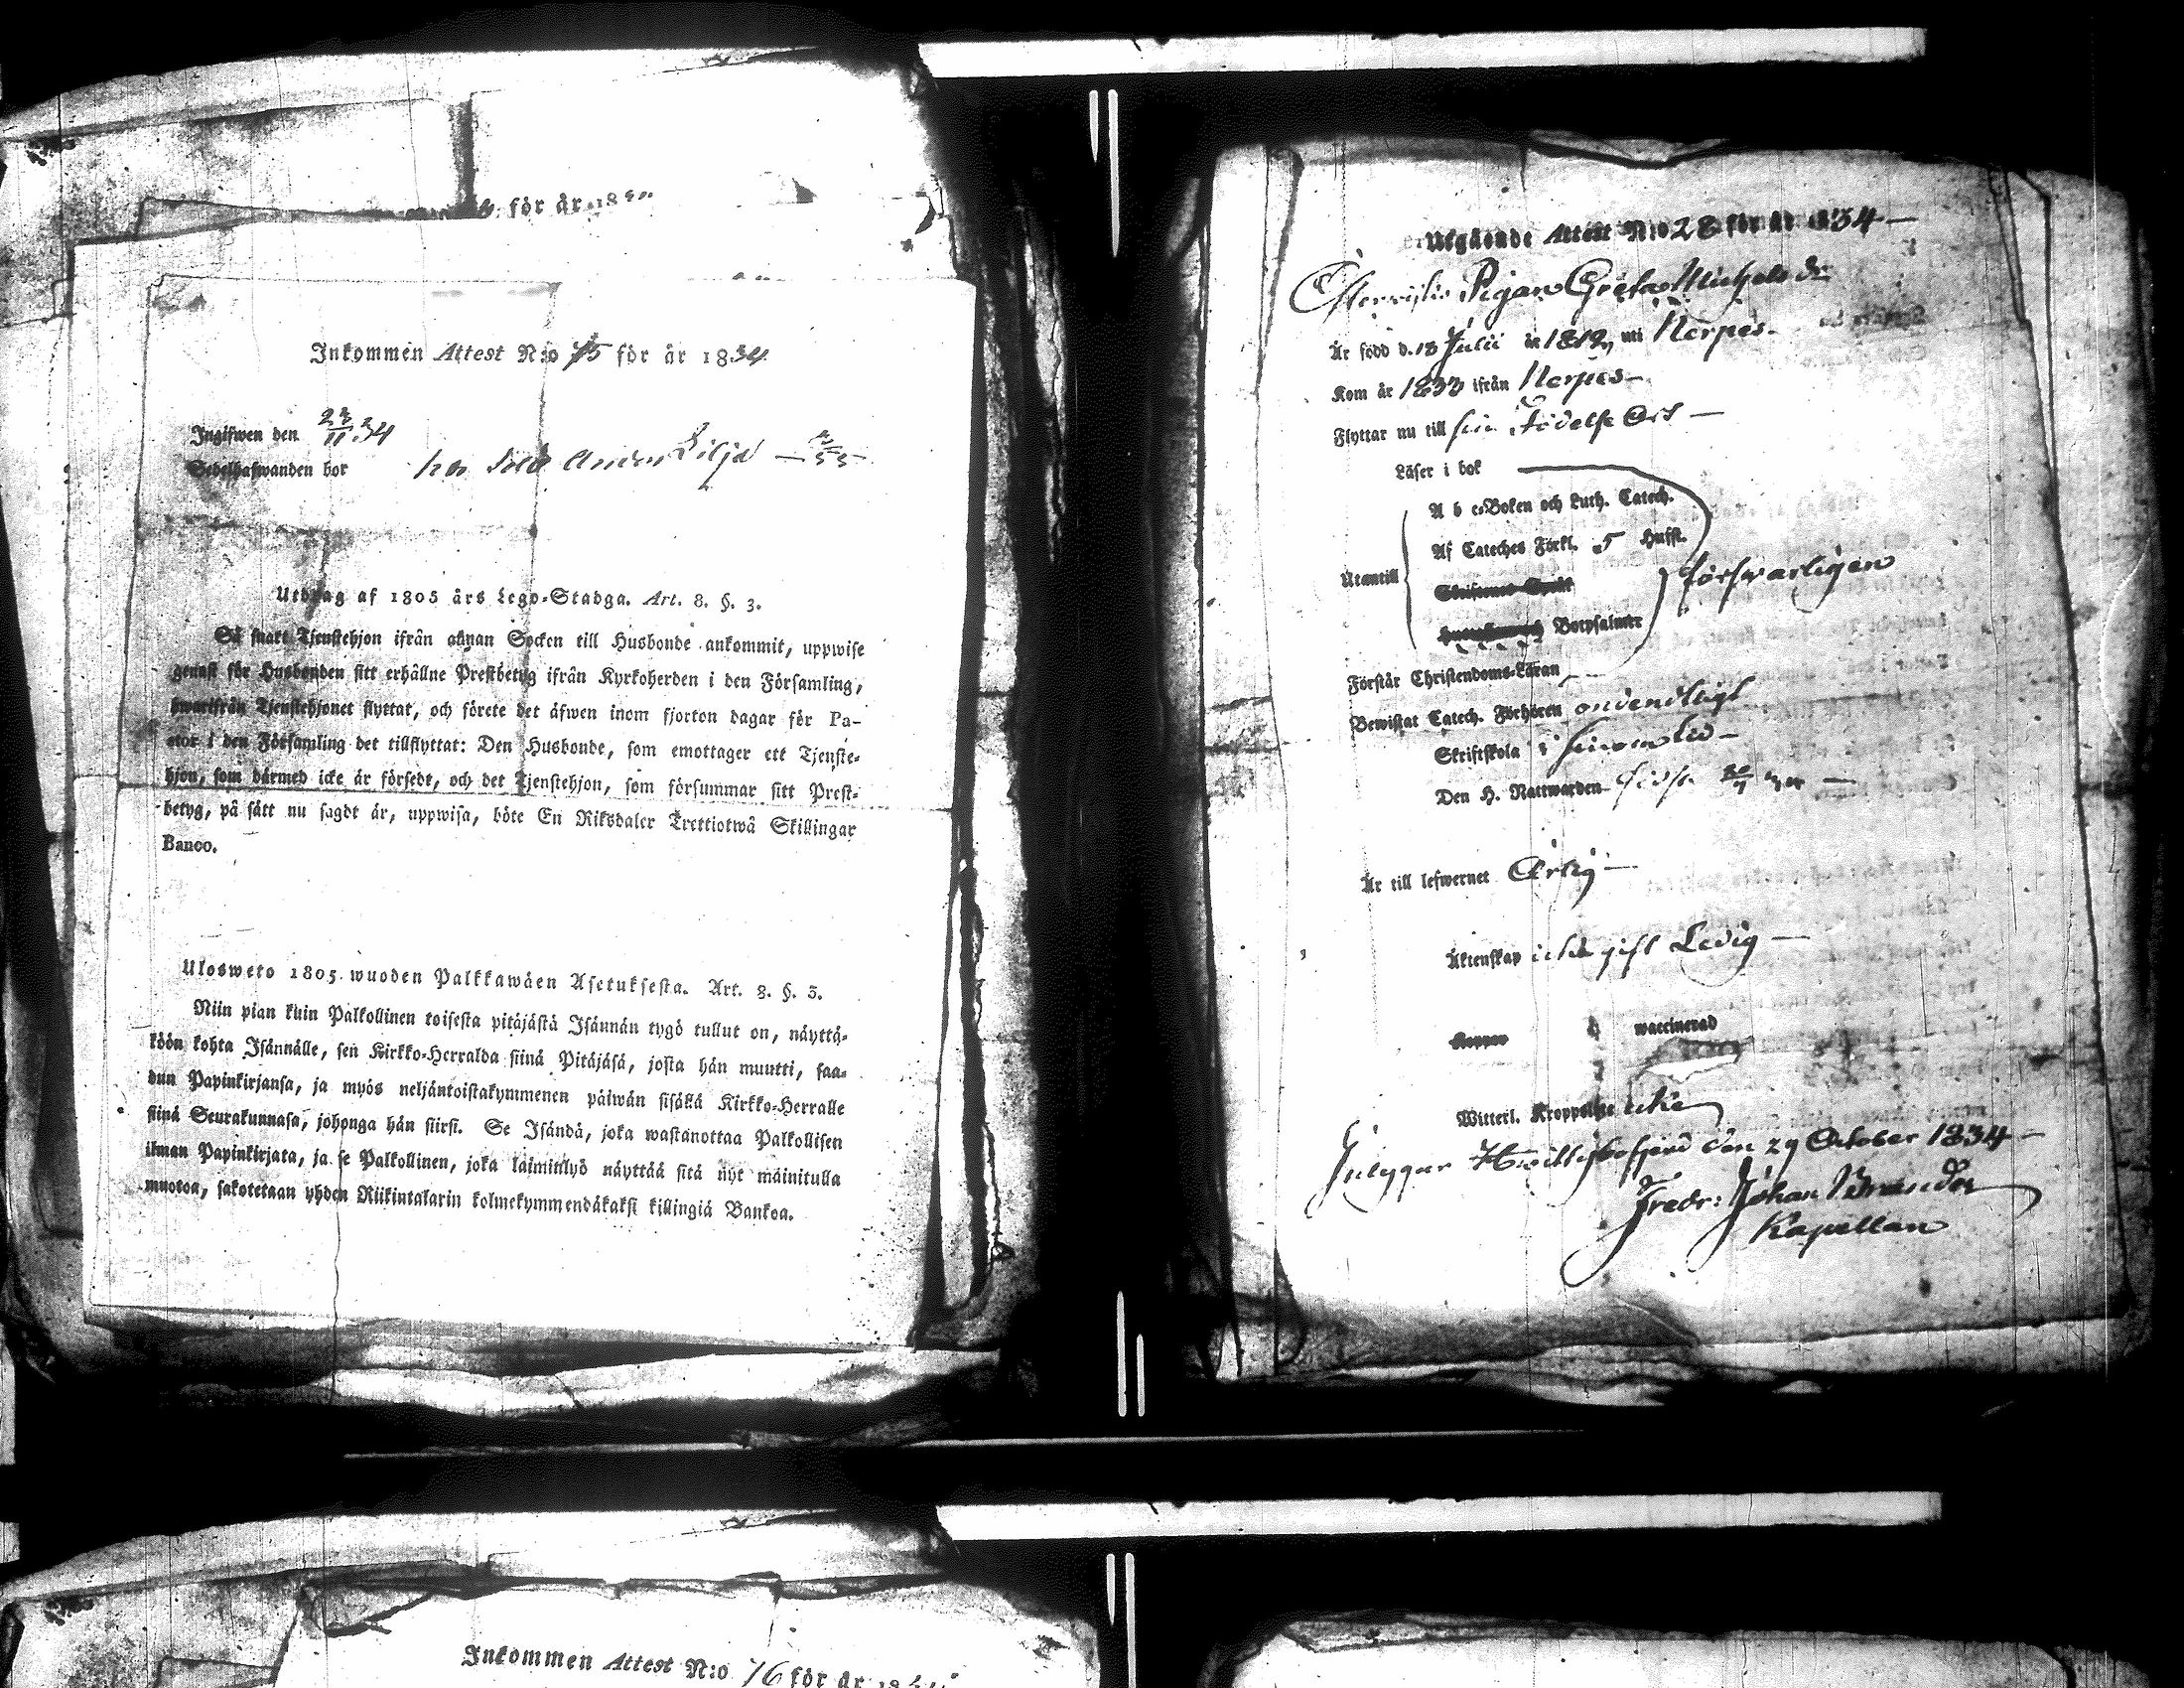 för år 18
Inkommen Attest N:o 75 för år 1834
Ingifwen den 2/11 34
Sedelhafwanden bor hos Anders Lilja
Utdrag af 1805 års Lego-Stadga. Art. 8. §. 3.
Så snart Tjenstehjon ifrån annan Socken till Husbonde ankommit, uppwise
genast för Husbonden sitt erhållne Prestbetyg ifrån Kyrkoherden i den Församling,
hwarifrån Tjenstehjonet flyttat, och förete det äfwen inom fjorton dagar för Pa-
stor i den Församling det tillflyttat: Den Husbonde, som emottager ett Tjenste-
hjon, som därmed icke är försedt, och det Tjenstehjon, som försummar sitt Prest-
betyg, på sätt nu sagdt är, uppwisa, böte En Riksdaler Trettiotwå Skillingar
Banco.
Ulosweto 1805 wuoden Palkkawäen Asetuksesta. Art. 8. §. 3.
Niin pian kuin Palkollinen toisesta pitäjästä Isännän tygö tullut on, näyttä-
köön kohta Isännälle, sen Kirkko-Herralda siinä Pitäjäsä, josta hän muutti, saa-
dun Papinkirjansa, ja myös neljäntoistakymmenen päiwän sisällä Kirkko-Herralle
siinä Seurakunnasa, johonga hän siirsi. Se Isändä, joka wastanottaa Palkollisen
ilman Papinkirjata, ja se Palkollinen, joka laiminlyö näyttää sitä nyt mainitulla
muotoa, sakotetaan yhden Riikintalarin kolmekymmendäkaksi killingiä Bankoa.
Utgående Attest N:o 28 för år 1834
Pigan Greta Michelsdr
Är född d. 18 Julii år 1812, uti Nerpes
Kom år 1833 ifrån Nerpes
Flyttar nu till sin Födelse Ort
Läser i bok
A b c-Boken och Luth. Catech.
Af Cateches Förkl. 5 Hufst.
Utantill försvarligen
Botpsalmer
Förstår Christendoms-Läran
Bewistat Catech. Förhören
Skriftskola i sinom tid
Den H. Nattwarden sidst
Är till lefwernet Ärlig
Äktenskap icke gift Ledig
Koppor waccinerad
Witterl. Kroppslyte icke
Intygar den 29 October 1834
Fredr: Johan
Kapellan
Inkommen Attest N:o 76 för år 18